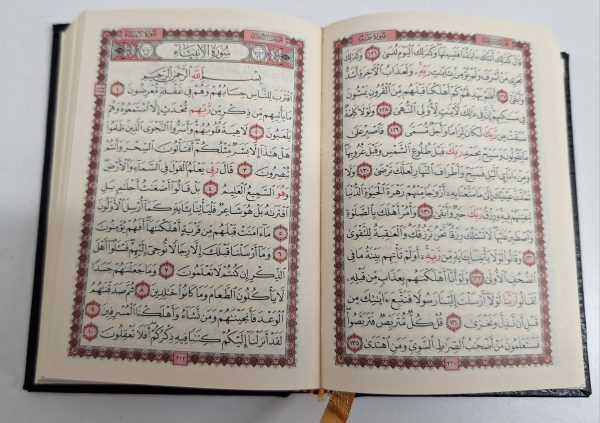 سُورَةُ طه
قَالَ كَذَٰلِكَ أَتَتْكَ ءَايَٰتُنَا فَنَسِيتَهَا وَكَذَٰلِكَ ٱلْيَوْمَ تُنسَىٰ ١٢٦ وَكَذَٰلِكَ
نَجْزِى مَنْ أَسْرَفَ وَلَمْ يُؤْمِنۢ بِـَٔايَٰتِ رَبِّهِۦ وَلَعَذَابُ ٱلْءَاخِرَةِ أَشَدُّ
وَأَبْقَىٰٓ ١٢٧ أَفَلَمْ يَهْدِ لَهُمْ كَمْ أَهْلَكْنَا قَبْلَهُم مِّنَ ٱلْقُرُونِ يَمْشُونَ
فِى مَسَٰكِنِهِمْ إِنَّ فِى ذَٰلِكَ لَءَايَٰتٍ لِّأُو۟لِى ٱلنُّهَىٰ ١٢٨ وَلَوْلَا كَلِمَةٌ
سَبَقَتْ مِن رَّبِّكَ لَكَانَ لِزَامًا وَأَجَلٌ مُّسَمًّى ١٢٩ فَٱصْبِرْ عَلَىٰ
مَا يَقُولُونَ وَسَبِّحْ بِحَمْدِ رَبِّكَ قَبْلَ طُلُوعِ ٱلشَّمْسِ وَقَبْلَ غُرُوبِهَا
وَمِنْ ءَانَآئِ ٱلَّيْلِ فَسَبِّحْ وَأَطْرَافَ ٱلنَّهَارِ لَعَلَّكَ تَرْضَىٰ ١٣٠ وَلَا
تَمُدَّنَّ عَيْنَيْكَ إِلَىٰ مَا مَتَّعْنَا بِهِۦٓ أَزْوَٰجًا مِّنْهُمْ زَهْرَةَ ٱلْحَيَوٰةِ ٱلدُّنْيَا
لِنَفْتِنَهُمْ فِيهِ وَرِزْقُ رَبِّكَ خَيْرٌ وَأَبْقَىٰ ١٣١ وَأْمُرْ أَهْلَكَ بِٱلصَّلَوٰةِ
وَٱصْطَبِرْ عَلَيْهَا لَا نَسْـَٔلُكَ رِزْقًا نَّحْنُ نَرْزُقُكَ وَٱلْعَٰقِبَةُ لِلتَّقْوَىٰ
١٣٢ وَقَالُوا۟ لَوْلَا يَأْتِينَا بِـَٔايَةٍ مِّن رَّبِّهِۦٓ أَوَلَمْ تَأْتِهِم بَيِّنَةُ مَا فِى
ٱلصُّحُفِ ٱلْأُولَىٰ ١٣٣ وَلَوْ أَنَّآ أَهْلَكْنَٰهُم بِعَذَابٍ مِّن قَبْلِهِۦ
لَقَالُوا۟ رَبَّنَا لَوْلَآ أَرْسَلْتَ إِلَيْنَا رَسُولًا فَنَتَّبِعَ ءَايَٰتِكَ مِن
قَبْلِ أَن نَّذِلَّ وَنَخْزَىٰ ١٣٤ قُلْ كُلٌّ مُّتَرَبِّصٌ فَتَرَبَّصُوا۟
فَسَتَعْلَمُونَ مَنْ أَصْحَٰبُ ٱلصِّرَٰطِ ٱلسَّوِىِّ وَمَنِ ٱهْتَدَىٰ ١٣٥
٣٢١
سُورَةُ الأَنبيَاء
سُورَةُ الأَنبيَاء
بِسْمِ ٱللَّهِ ٱلرَّحْمَٰنِ ٱلرَّحِيمِ
ٱقْتَرَبَ لِلنَّاسِ حِسَابُهُمْ وَهُمْ فِى غَفْلَةٍ مُّعْرِضُونَ ١
مَا يَأْتِيهِم مِّن ذِكْرٍ مِّن رَّبِّهِم مُّحْدَثٍ إِلَّا ٱسْتَمَعُوهُ وَهُمْ
يَلْعَبُونَ ٢ لَاهِيَةً قُلُوبُهُمْ وَأَسَرُّوا۟ ٱلنَّجْوَى ٱلَّذِينَ ظَلَمُوا۟
هَلْ هَٰذَآ إِلَّا بَشَرٌ مِّثْلُكُمْ أَفَتَأْتُونَ ٱلسِّحْرَ وَأَنتُمْ
تُبْصِرُونَ ٣ قَالَ رَبِّى يَعْلَمُ ٱلْقَوْلَ فِى ٱلسَّمَآءِ وَٱلْأَرْضِ
وَهُوَ ٱلسَّمِيعُ ٱلْعَلِيمُ ٤ بَلْ قَالُوٓا۟ أَضْغَٰثُ أَحْلَٰمٍۭ بَلِ
ٱفْتَرَىٰهُ بَلْ هُوَ شَاعِرٌ فَلْيَأْتِنَا بِـَٔايَةٍ كَمَآ أُرْسِلَ ٱلْأَوَّلُونَ
٥ مَآ ءَامَنَتْ قَبْلَهُم مِّن قَرْيَةٍ أَهْلَكْنَٰهَآ أَفَهُمْ يُؤْمِنُونَ
٦ وَمَآ أَرْسَلْنَا قَبْلَكَ إِلَّا رِجَالًا نُّوحِىٓ إِلَيْهِمْ فَسْـَٔلُوٓا۟ أَهْلَ
ٱلذِّكْرِ إِن كُنتُمْ لَا تَعْلَمُونَ ٧ وَمَا جَعَلْنَٰهُمْ جَسَدًا
لَّا يَأْكُلُونَ ٱلطَّعَامَ وَمَا كَانُوا۟ خَٰلِدِينَ ٨ ثُمَّ صَدَقْنَٰهُمُ
ٱلْوَعْدَ فَأَنجَيْنَٰهُمْ وَمَن نَّشَآءُ وَأَهْلَكْنَا ٱلْمُسْرِفِينَ ٩
لَقَدْ أَنزَلْنَآ إِلَيْكُمْ كِتَٰبًا فِيهِ ذِكْرُكُمْ أَفَلَا تَعْقِلُونَ ١٠
٣٢٢